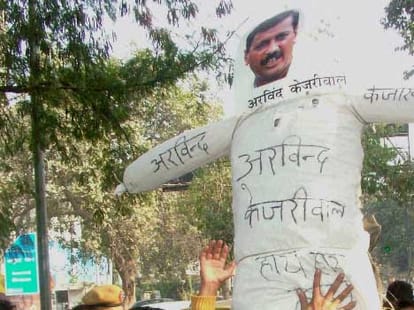 अरविंद केजरीवाल
केजरी
अरविन्द
अरविन्द
केजरीवाल
हाय हाय